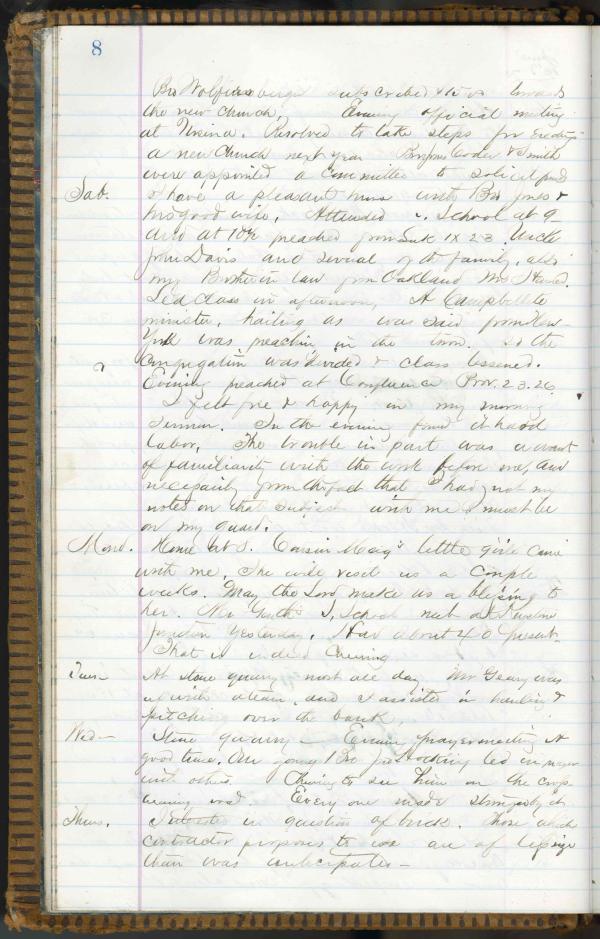 8
Bro Wolfersberger subscribed $1500 towards
the new church. Evening official meeting
at Ursina. Resolved to take steps for erecting
a new Church next year Bros Coder & Smith
were appointed a Committee to solicit fund
& have a pleasant time with Bro Jones &
Sab. his good wife. Attended S. School at 9
and at 10½ preached from Luk IX 23 Uncle
John Davis and several of family, also
my Brother in law from Oakland
Led class in afternoon, A Campbellite
minister, hailing as was said from New
York was preaching in the town. So the
congregation was divided & class lessened.
Evening preached at Confluence Prov. 23.26
I felt free & happy in my morning
sermon. In the evening found it hard
labor, The trouble in part was a want
of familiarity with the work before me, and
necessarily from the fact that I had not my
notes on that subject with me I must be
on my guard.
Mond. Home at 3. Cousin Mary's little girl came
with me, She will visit us a couple
weeks. May the Lord make us a blessing to
her. S. School met at
Junction yesterday. Had about 40 present
That is indeed cheering
Tues— At stone quarry most all day. Mr Geary was
with a team, and I assisted in hauling &
pitching over the bank,
Wed— Stone quarry — Evening prayermeeting A
good time. Our young Bro led in prayer
with others. Cheering to see him on the cross
bearing road Every one made
Thurs. Interested in question of brick. Those which
contractor proposes to use are of less size
than was anticipated —